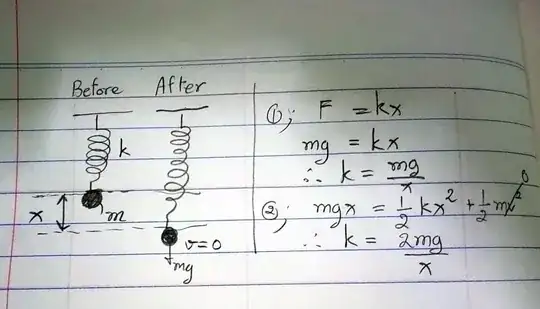 Before After
k
x
m
v=0
mg
①; F = kx
mg = kx
∴ k = mg/x
②; mgx = 1/2 kx² + 1/2 mv² 0
∴ k = 2mg/x